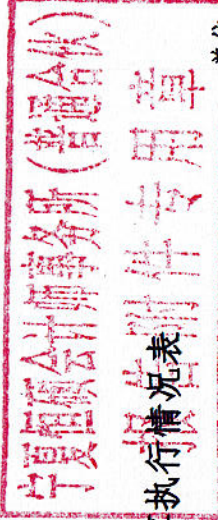 宁夏会计师事务所(普通合伙)
报告附件专用章
执行情况表